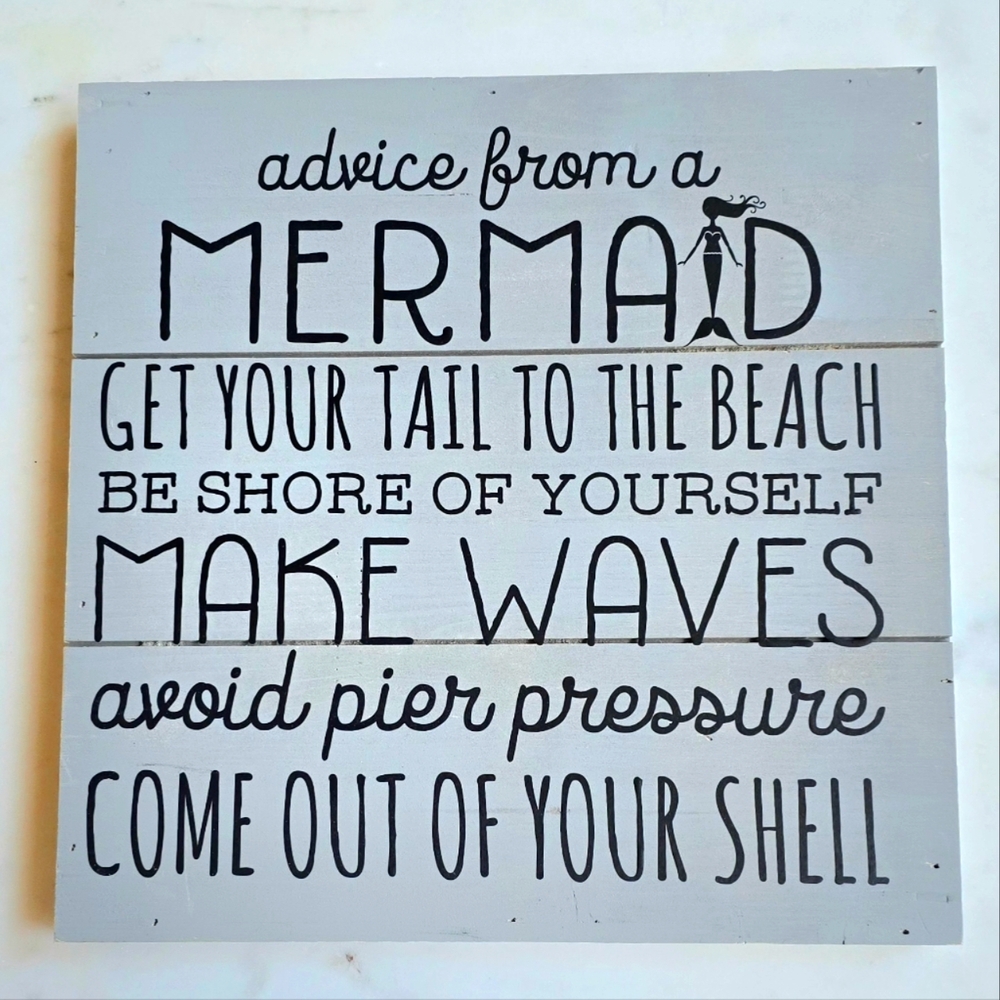 advice from a
MERMAID
GET YOUR TAIL TO THE BEACH
BE SHORE OF YOURSELF
MAKE WAVES
avoid pier pressure
COME OUT OF YOUR SHELL